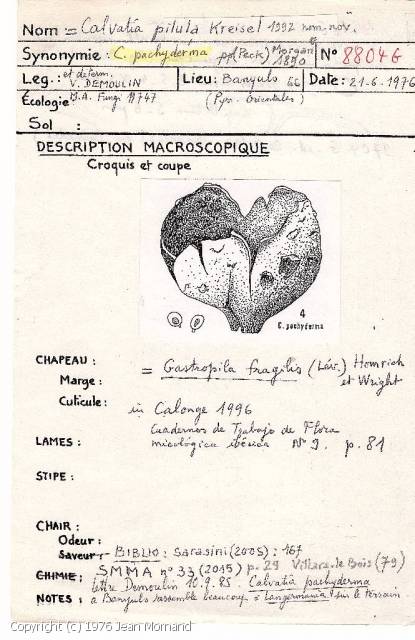 Nom = Calvatia pilula Kreisel 1992 nom. nov.
Synonymie : C. pachyderma pp (Peck) Morgan 1890 N° 88046
Leg. : et determ. V. DEMOULIN Lieu : Banyuls 66 Date : 21-6-1976
Écologie B.A. Fungi 11747 (Pyr. Orientales)
Sol :
DESCRIPTION MACROSCOPIQUE
Croquis et coupe
4
C. pachyderma
CHAPEAU : = Gastropila fragilis (Lév.) Homrich et Wright
Marge :
Cuticule : in Calonge 1996
Cuadernos de Trabajo de Flora
LAMES : micológica ibérica N° 9. p. 81
STIPE :
CHAIR :
Odeur :
Saveur - BIBLIO : Sarasini (2005) : 167
CHIMIE : SMMA n° 33 (2015) p. 29 Villiers-le-Bois (79)
lettre Demoulin 10.9.85. Calvatia pachyderma
NOTES : à Banyuls ressemble beaucoup à "Langermannia" sur le terrain.
Copyright (c) 1976 Jean Mornand